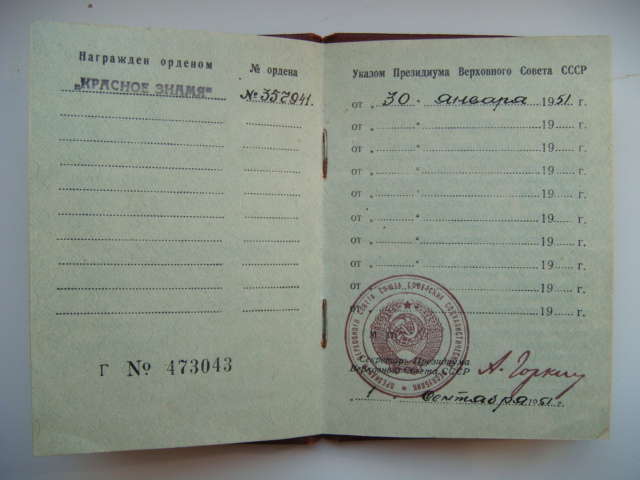 Награжден орденом
№ ордена
„КРАСНОЕ ЗНАМЯ“
№ 357941.
Г № 473043
Указом Президиума Верховного Совета СССР
от „ 30 “ января 1951 г.
от „ “ 19 г.
от „ “ 19 г.
от „ “ 19 г.
от „ “ 19 г.
от „ “ 19 г.
от „ “ 19 г.
от „ “ 19 г.
от „ 19 г.
от 19 г.
М
Секретарь Президиума
Верховного Совета СССР
А. Горкин
„ 1 “ сентября 1951 г.